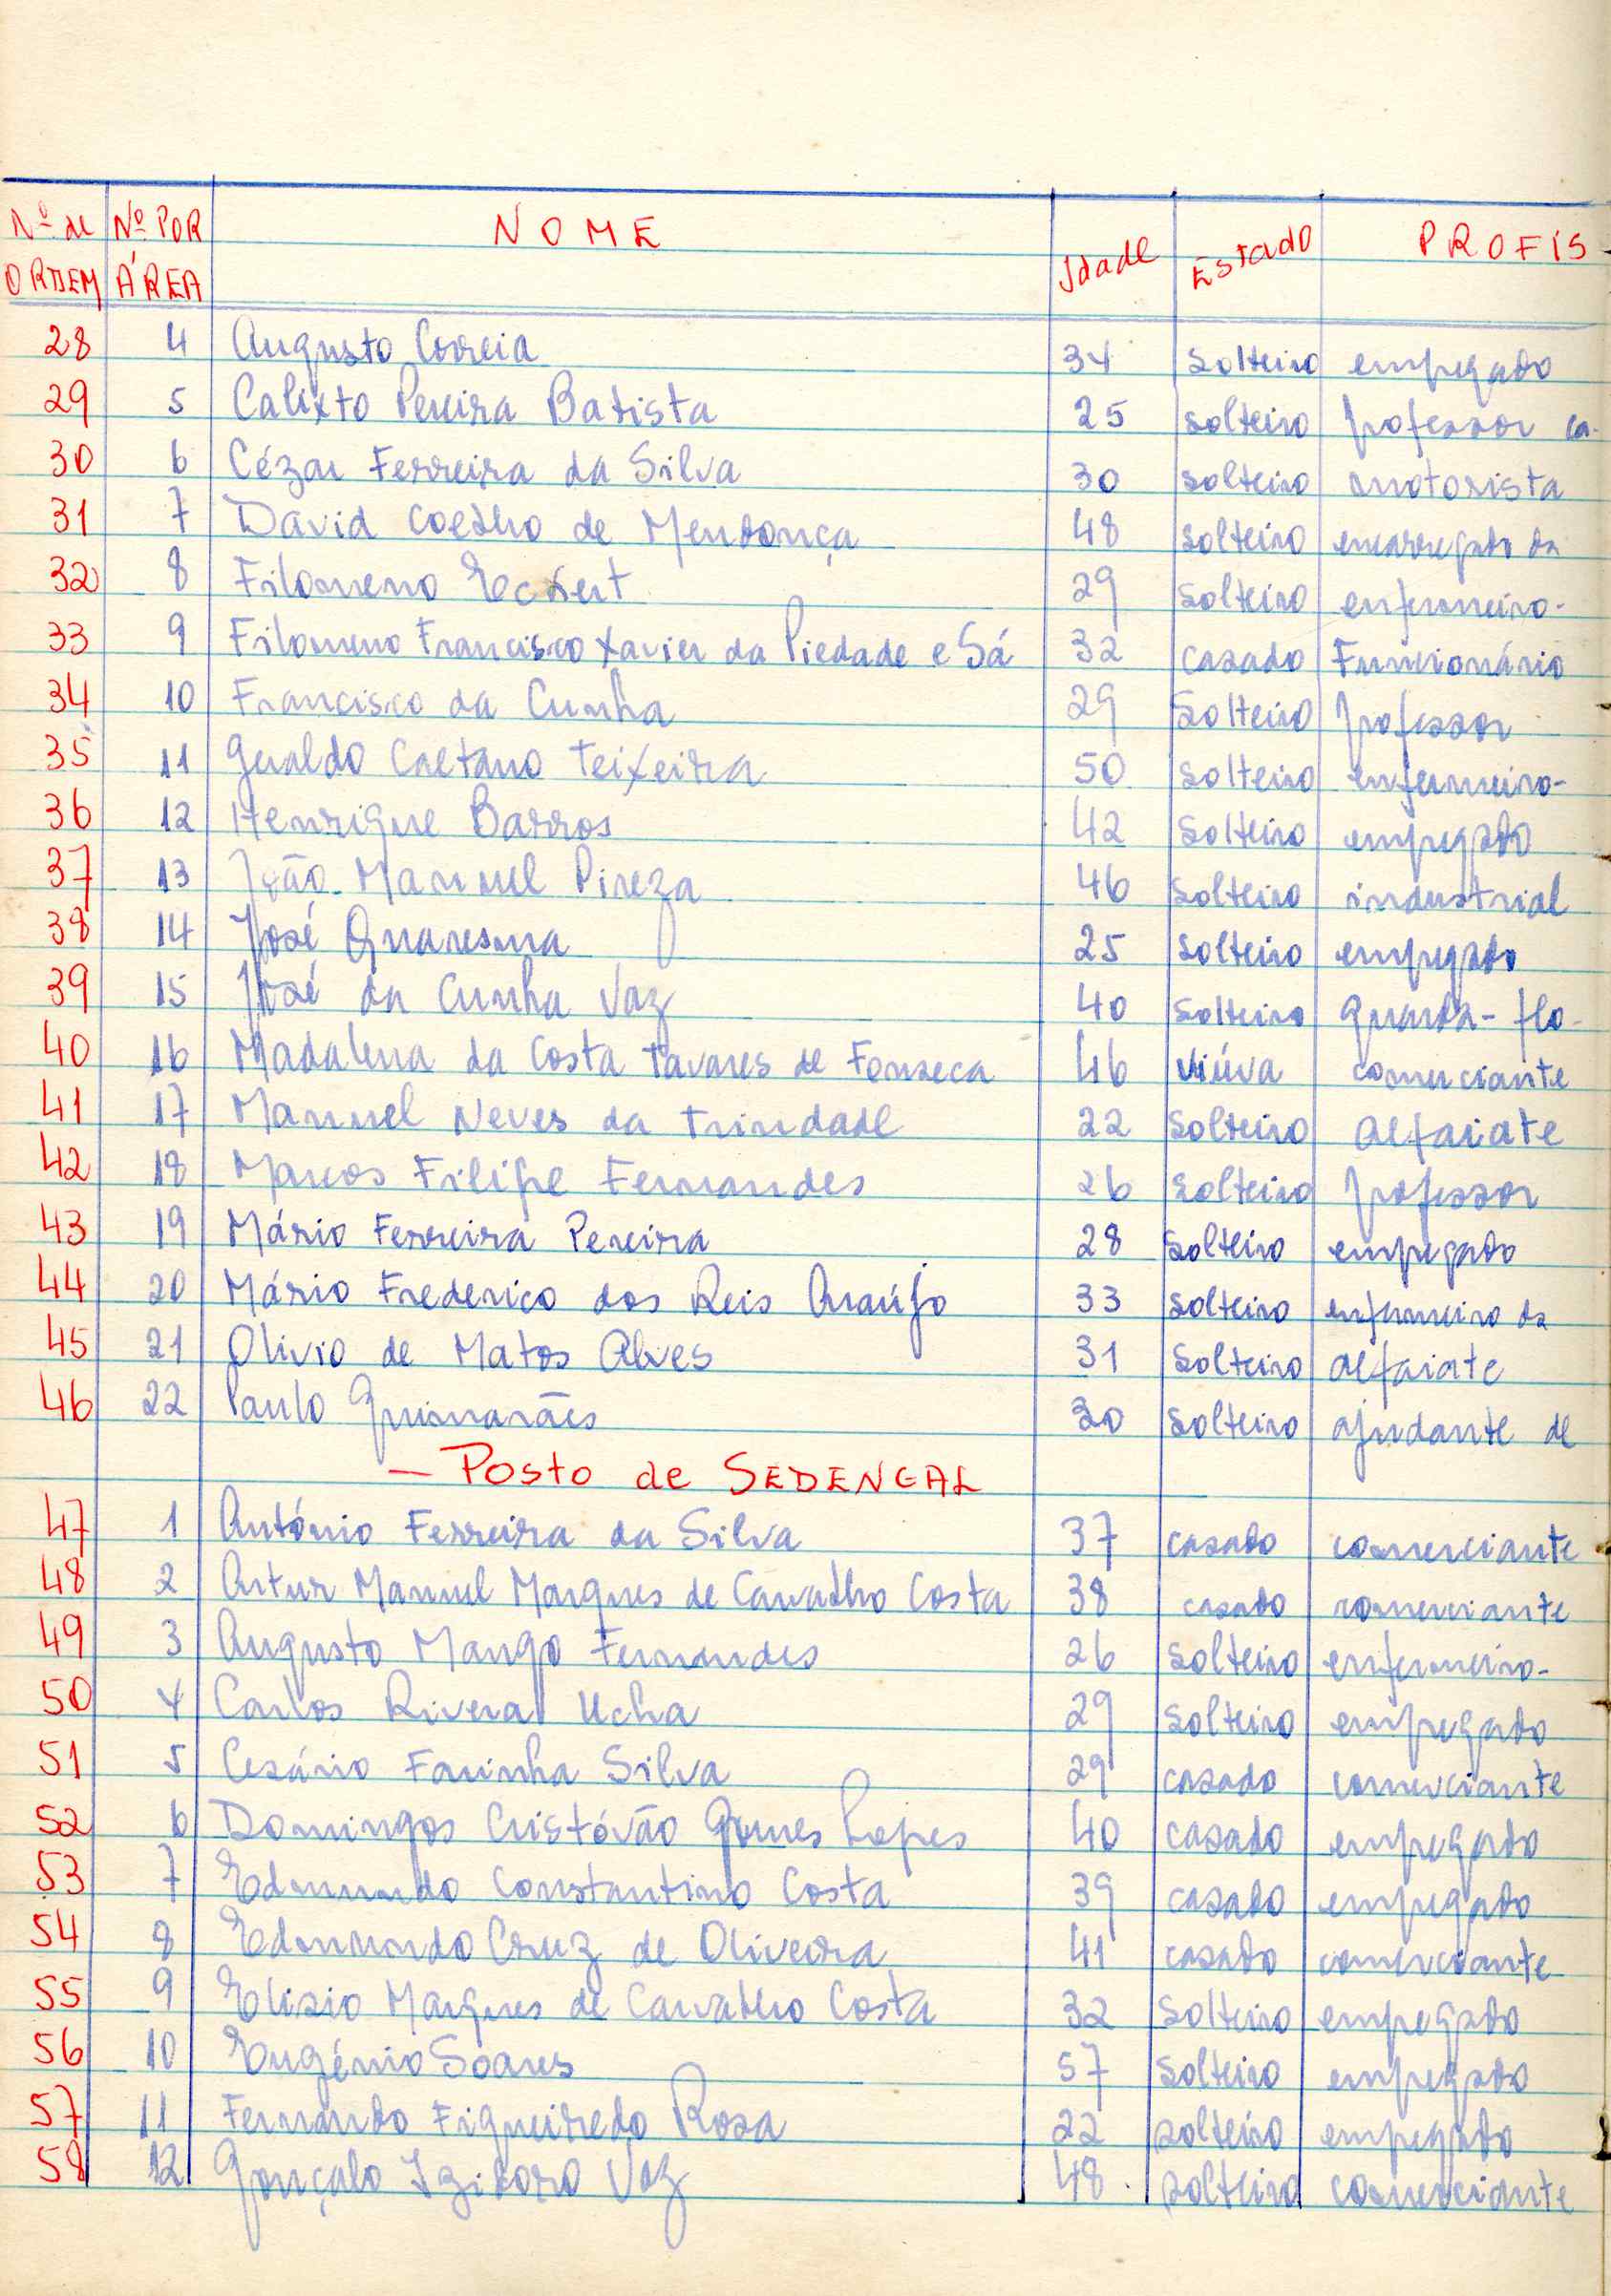 Nº de Nº POR NOME Idade Estado PROFIS
ORDEM ÁREA
28 4 Augusto Correia 34 Solteiro empregado
29 5 Calixto Pereira Batista 25 Solteiro professor ca-
30 6 Cézar Ferreira da Silva 30 Solteiro motorista
31 7 David Coelho de Mendonça 48 Solteiro encarregado da
32 8 Filomeno Eckert 29 Solteiro enfermeiro-
33 9 Filomeno Francisco Xavier da Piedade e Sá 32 casado Funcionário
34 10 Francisco da Cunha 29 Solteiro professor
35 11 Geraldo Caetano Teixeira 50 Solteiro enfermeiro-
36 12 Henrique Barros 42 Solteiro empregado
37 13 João Manuel Pireza 46 Solteiro industrial
38 14 José Quaresma 25 Solteiro empregado
39 15 José da Cunha Vaz 40 Solteiro guarda-flo-
40 16 Madalena da Costa Tavares de Fonseca 46 viúva comerciante
41 17 Manuel Neves da Trindade 22 Solteiro alfaiate
42 18 Marcos Filipe Fernandes 26 Solteiro professor
43 19 Mário Ferreira Pereira 28 Solteiro empregado
44 20 Mário Frederico dos Reis Araújo 33 Solteiro enfermeiro da
45 21 Olivio de Matos Alves 31 Solteiro alfaiate
46 22 Paulo Guimarães 30 Solteiro ajudante de
— Posto de SEDENGAL
47 1 António Ferreira da Silva 37 casado comerciante
48 2 Artur Manuel Marques de Carvalho Costa 38 casado comerciante
49 3 Augusto Mango Fernandes 26 Solteiro enfermeiro-
50 4 Carlos Rivera Ucha 29 Solteiro empregado
51 5 Cesário Farinha Silva 29 casado comerciante
52 6 Domingos Cristóvão Gomes Lopes 40 casado empregado
53 7 Edmundo Constantino Costa 39 casado empregado
54 8 Edmundo Cruz de Oliveira 41 casado comerciante
55 9 Elisio Marques de Carvalho Costa 32 Solteiro empregado
56 10 Eugénio Soares 57 Solteiro empregado
57 11 Fernando Figueiredo Rosa 22 solteiro empregado
58 12 Gonçalo Izidoro Vaz 48 solteiro comerciante